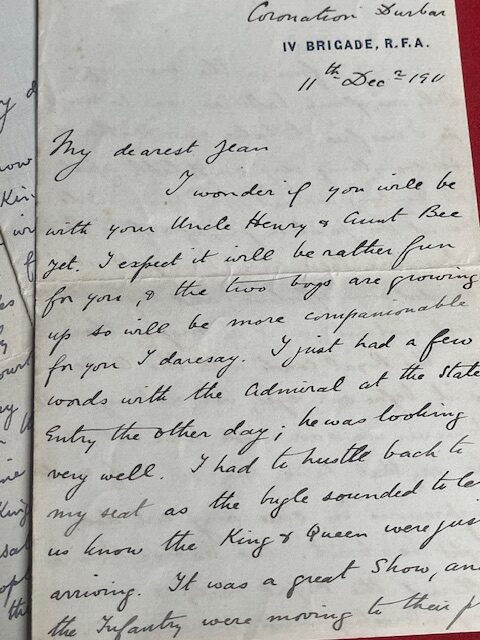 Coronation Durbar
IV BRIGADE, R.F.A.
11th Decr 1911
My dearest Jean
I wonder if you will be
with your Uncle Henry & Aunt Bee
yet. I expect it will be rather fun
for you, & the two boys are growing
up so will be more companionable
for you I daresay. I just had a few
words with the Admiral at the State
Entry the other day; he was looking
very well. I had to hustle back to
my seat as the bugle sounded to le
us know the King & Queen were jus
arriving. It was a great Show, an
the Infantry were moving to their p
now
Kin